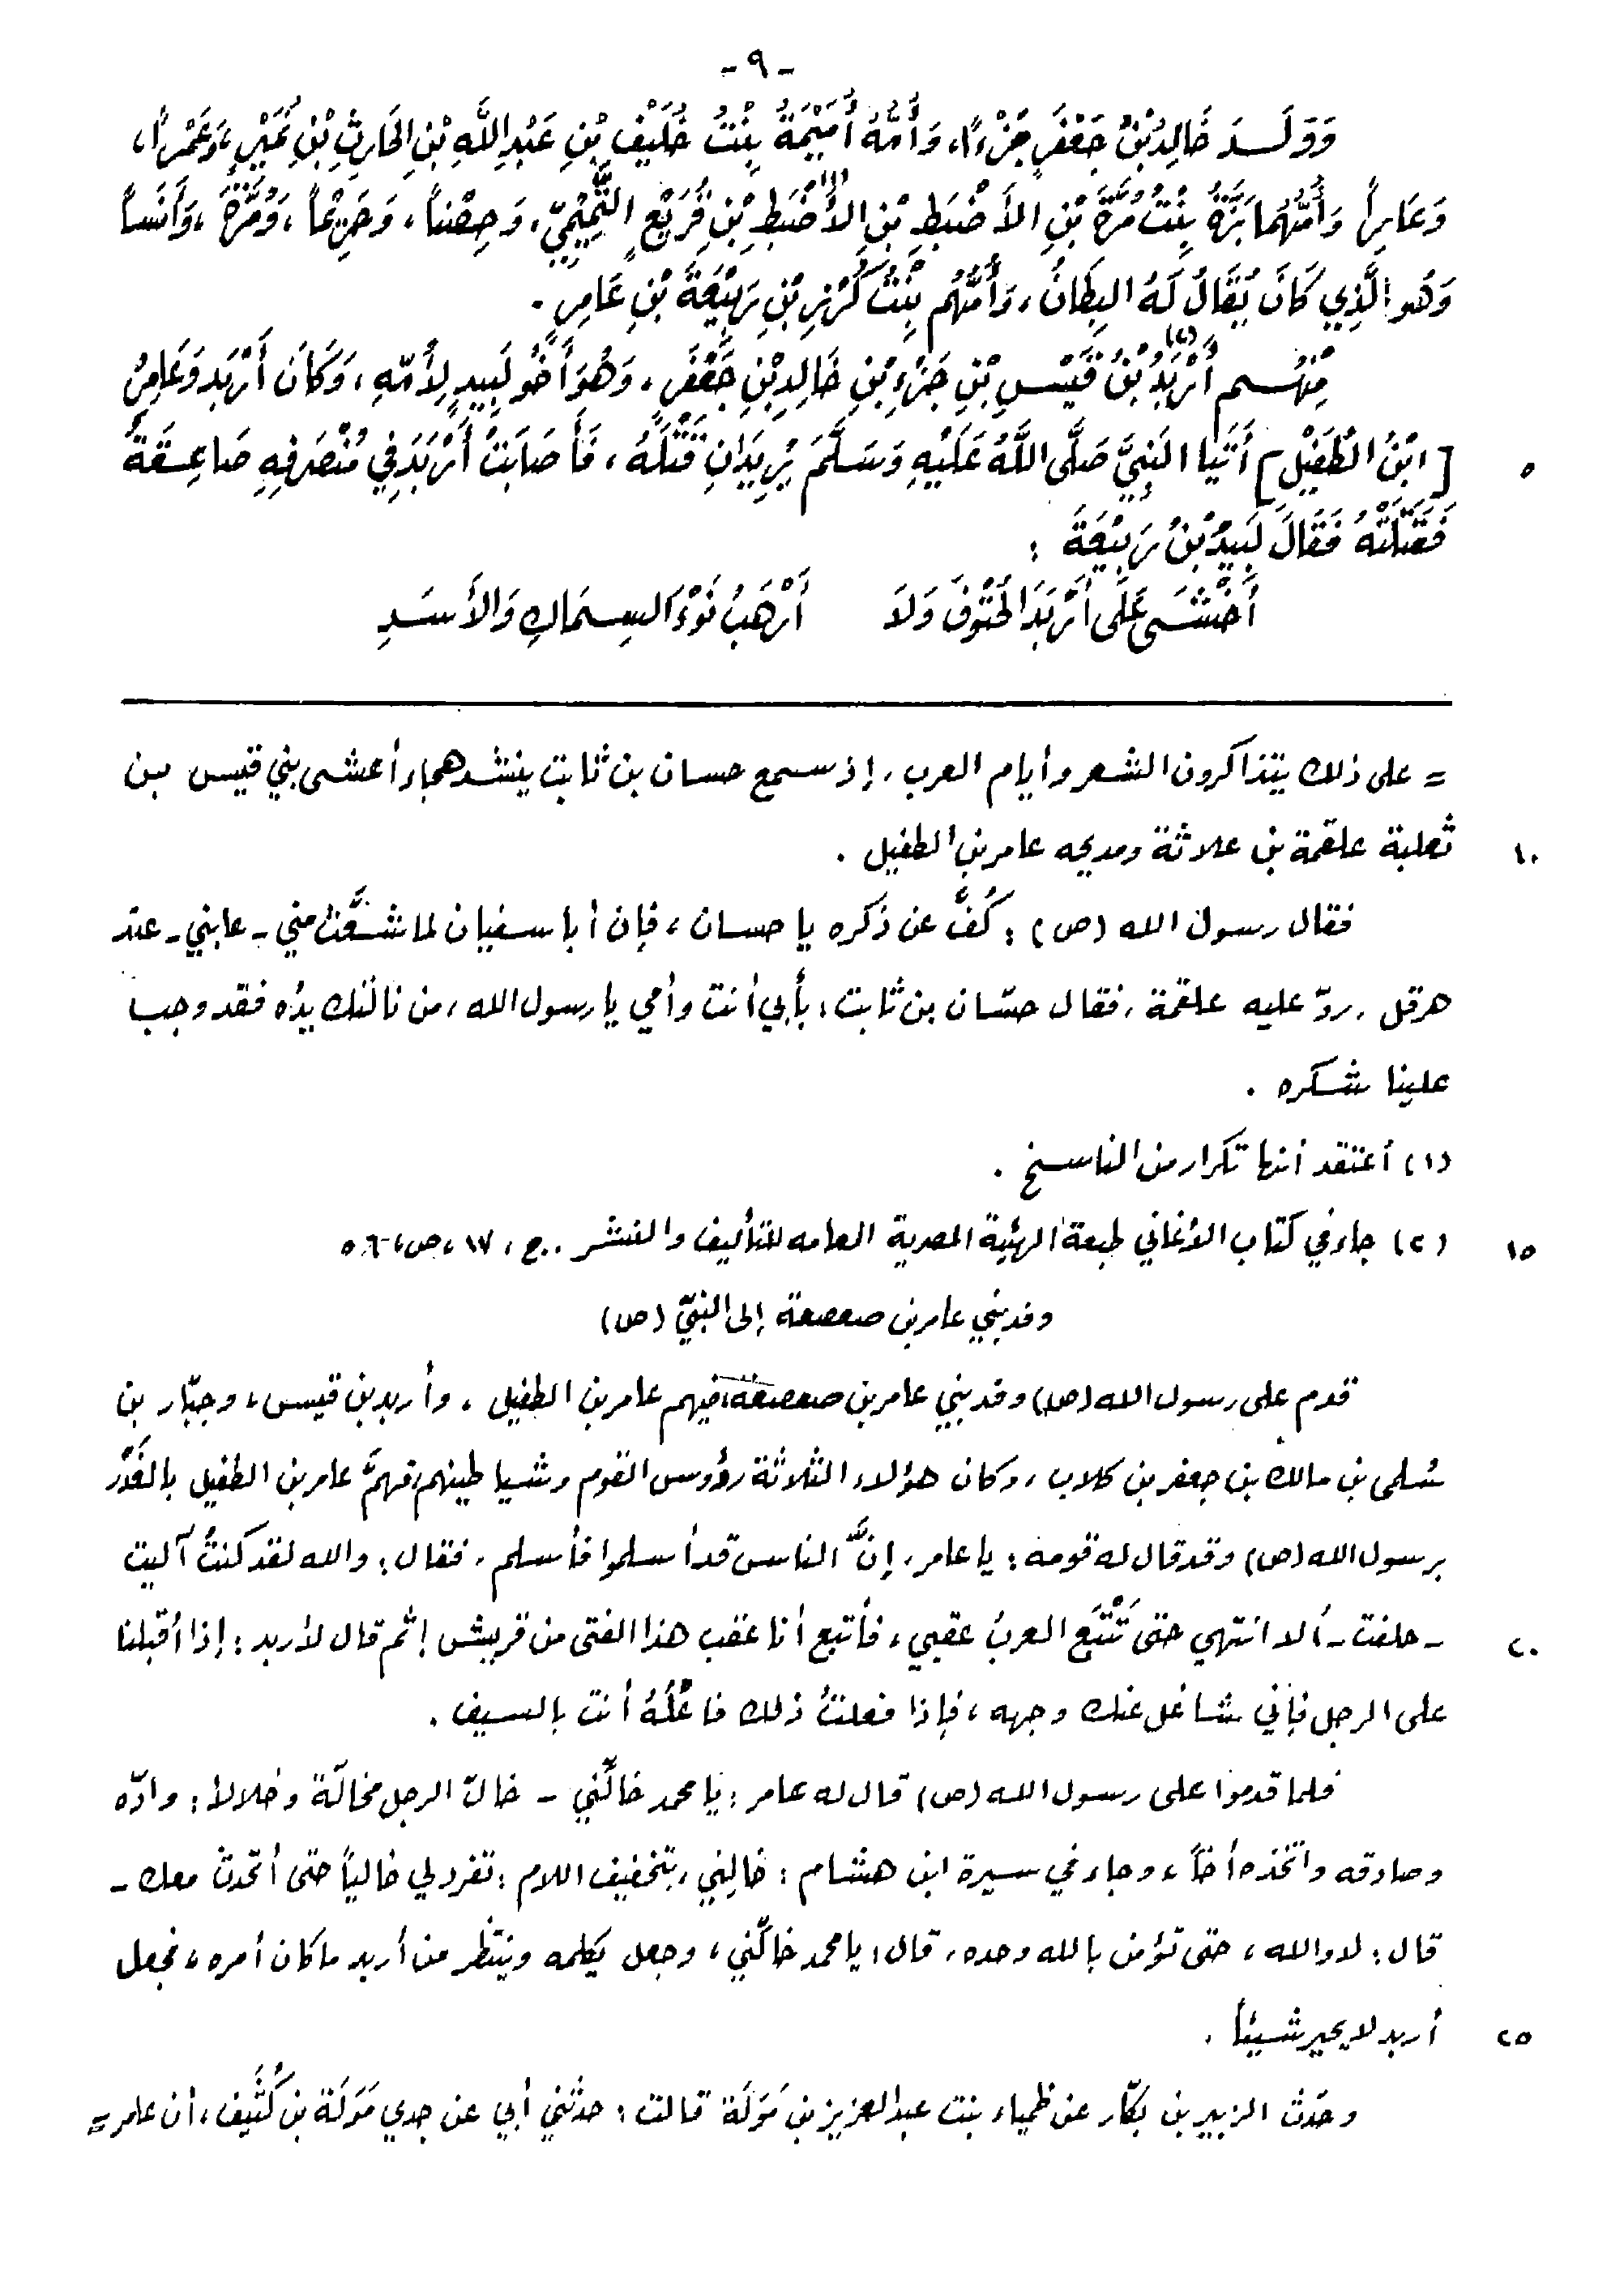 -٩-
وَوَلَدَ خَالِدُ بْنُ جَعْفَرٍ جَزْءاً، وَأُمُّهُ أُمَيْمَةُ بِنْتُ خُلَيْفِ بْنِ عَبْدِ اللَّهِ بْنِ الحَارِثِ بْنِ نُمَيْرٍ، وَعَمْراً،
وَعَامِراً وَأُمُّهُما بَرَّةُ بِنْتُ مُرَّةَ بْنِ الأَضْبَطِ بْنِ الأَضْبَطِ (١) بْنِ قُرَيْعٍ التَّمِيْمِيّ، وَحِصْناً، وَحَرِيْماً، وَمُرَّةَ، وَأَنَساً
وَهُوَ الَّذِي كَانَ يُقَالُ لَهُ البِطَانُ، وَأُمُّهُم بِنْتُ كُرْزِ بْنِ رَبِيْعَةَ بْنِ عَامِرٍ.
مِنْهُم أَرْبَدُ (٢) بْنُ قَيْسِ بْنِ جَزْءِ بْنِ خَالِدِ بْنِ جَعْفَرٍ، وَهُوَ أَخُو لَبِيدٍ لِأُمّهِ، وَكَانَ أَرْبَد وَعَامِرُ
[ابْنُ الطُّفَيْلِ] أَتَيَا النَبِيَّ صَلَّى اللَّهُ عَلَيْهِ وَسَلَّمَ يُرِيدَانِ قَتْلَهُ، فَأَصَابَتْ أَرْبَدَ فِي مُنْصَرَفِهِ صَاعِقَةٌ ٥
فَقَتَلَتْهُ فَقَالَ لَبِيدُ بْنُ رَبِيْعَةَ :
أَخْشَى عَلَى أَرْبَدَ الحُتُوفَ وَلَا أَرْهَبُ نَوْءَ السِمَاكِ وَالأَسَدِ
= على ذلك يتذاكرون الشعر وأيام العرب، إذ سمع حسان بن ثابت ينشد هجاء أعشى بني قيس بن
ثعلبة علقمة بن علاثة ومديحه عامر بن الطفيل . ١٠
فقال رسول الله (ص) : كُفَّ عن ذكره يا حسان، فإن أبا سفيان لما شعَّث مني - عابني - عند
هرقل، ردّ عليه علقمة، فقال حسّان بن ثابت: بأبي أنت وأمي يا رسول الله، من نالتك يدُه فقد وجب
علينا شكره .
(١) أعتقد أنها تكرار من الناسخ .
(٢) جاء في كتاب الأغاني طبعة الهئية المصرية العامه للتأليف والنشر .. ج، ١٧، ص، ٥٦ ١٥
وفد بني عامر بن صعصعة إلى النبيّ (ص)
قدم على رسول الله (ص) وفد بني عامر بن صعصعة، فيهم عامر بن الطفيل، وأربد بن قيس، وجبّار بن
سُلمى بن مالك بن جعفر بن كلاب، وكان هؤلاء الثلاثة رؤوس القوم وشياطينهم، فهمَّ عامر بن الطفيل بالغَدْر
برسول الله (ص) وقد قال له قومه : يا عامر، إنَّ الناس قد أسلموا فأسلم، فقال: والله لقد كنتُ آليت
- حلفت - ألا انتهي حتى تَتْبَع العربُ عقبي، فأتبع أنا عقب هذا الفتى من قريش ! ثم قال لأربد : إذا أقبلنا ٢٠
على الرجل فإني شاغل عنك وجهه، فإذا فعلتُ ذلك فاعْلُهُ أنت بالسيف .
فلما قدموا على رسول الله (ص) قال له عامر : يا محمد خالّني - خالّ الرجل مخالّة وخلالا : وادّه
وصادقه واتخذه أخاً، وجاء في سيرة ابن هشام : خالِني، بتخفيف اللام : تفرد لي خالياً حتى أتحدث معك -
قال : لا والله، حتى تؤمن بالله وحده، قال : يا محمد خالّني، وجعل يكلمه وينتظر من أربد ما كان أمره، فجعل
أربد لا يحير شيئاً . ٢٥
وحَدث الزبير بن بكّار عن ظمياء بنت عبد العزيز بن مَوَلَة قالت : حدثني أبي عن جدي مَوَلَة بن كُثَيف، أن عامر =